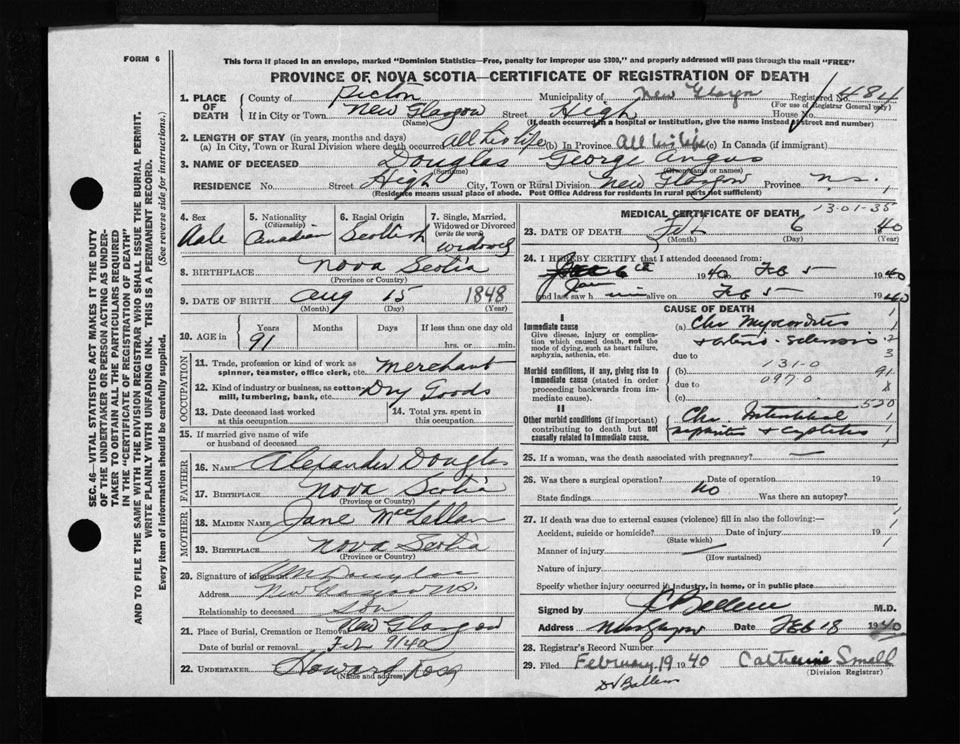 FORM 6
This form if placed in an envelope, marked "Dominion Statistics—Free, penalty for improper use $300," and properly addressed will pass through the mail "FREE"
PROVINCE OF NOVA SCOTIA—CERTIFICATE OF REGISTRATION OF DEATH
1. PLACE OF DEATH County of Pictou Municipality of New Glasgow Registered No. 484
(For use of Registrar General only)
If in City or Town New Glasgow Street High House No.
(Name) (If death occurred in a hospital or institution, give the name instead of street and number)
2. LENGTH OF STAY (in years, months and days)
(a) In City, Town or Rural Division where death occurred All his life (b) In Province All his life (c) In Canada (if immigrant)
3. NAME OF DECEASED Douglas George Angus
(Surname) (Given name or names)
RESIDENCE No. Street High City, Town or Rural Division New Glasgow Province N.S.
(Residence means usual place of abode. Post Office Address for residents in rural parts not sufficient)
SEC. 46—VITAL STATISTICS ACT MAKES IT THE DUTY
OF THE UNDERTAKER OR PERSON ACTING AS UNDER-
TAKER TO OBTAIN ALL THE PARTICULARS REQUIRED
IN THE "CERTIFICATE OF REGISTRATION OF DEATH"
AND TO FILE THE SAME WITH THE DIVISION REGISTRAR WHO SHALL ISSUE THE BURIAL PERMIT.
WRITE PLAINLY WITH UNFADING INK. THIS IS A PERMANENT RECORD.
Every item of information should be carefully supplied. (See reverse side for instructions.)
4. Sex Male
5. Nationality (Citizenship) Canadian
6. Racial Origin Scottish
7. Single, Married, Widowed or Divorced (write the word) Widowed
8. BIRTHPLACE Nova Scotia
(Province or Country)
9. DATE OF BIRTH Aug 15 1848
(Month) (Day) (Year)
10. AGE in Years 91 Months Days If less than one day old hrs. or min.
OCCUPATION
11. Trade, profession or kind of work as spinner, teamster, office clerk, etc. Merchant
12. Kind of industry or business, as cotton-mill, lumbering, bank, etc. Dry Goods
13. Date deceased last worked at this occupation
14. Total yrs. spent in this occupation
15. If married give name of wife or husband of deceased
FATHER
16. NAME Alexander Douglas
17. BIRTHPLACE Nova Scotia
(Province or Country)
MOTHER
18. MAIDEN NAME Jane McLellan
19. BIRTHPLACE Nova Scotia
(Province or Country)
20. Signature of informant Wm Douglas
Address New Glasgow NS
Relationship to deceased Son
21. Place of Burial, Cremation or Removal New Glasgow
Date of burial or removal Feb 9 1940
22. UNDERTAKER Howard
(Name and address)
MEDICAL CERTIFICATE OF DEATH
13-01-35
23. DATE OF DEATH Feb 6 1940
(Month) (Day) (Year)
24. I HEREBY CERTIFY that I attended deceased from:
Jan 6th 1940 Feb 5 1940
and last saw him alive on Feb 5 1940
CAUSE OF DEATH
I
Immediate cause (a) Chr Myocarditis
Give disease, injury or complication which caused death, not the mode of dying, such as heart failure, asphyxia, asthenia, etc. & arterio-sclerosis
due to
Morbid conditions, if any, giving rise to immediate cause (stated in order proceeding backwards from immediate cause). (b) 131-0
due to 097-0
(c) 520
II
Other morbid conditions (if important) contributing to death but not causally related to immediate cause. Chr Interstitial
nephritis & cystitis
25. If a woman, was the death associated with pregnancy? —
26. Was there a surgical operation? No Date of operation 19
State findings Was there an autopsy?
27. If death was due to external causes (violence) fill in also the following:—
Accident, suicide or homicide? Date of injury 19
(State which)
Manner of injury
(How sustained)
Nature of injury
Specify whether injury occurred in industry, in home, or in public place
Signed by M.D.
Address New Glasgow Date Feb 18 1940
28. Registrar's Record Number
29. Filed February 19 1940 Catherine Small
(Division Registrar)